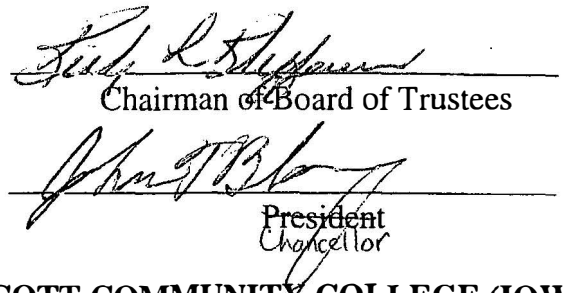 Chairman of Board of Trustees
John T Blong
President
Chancellor
SCOTT COMMUNITY COLLEGE (IOW